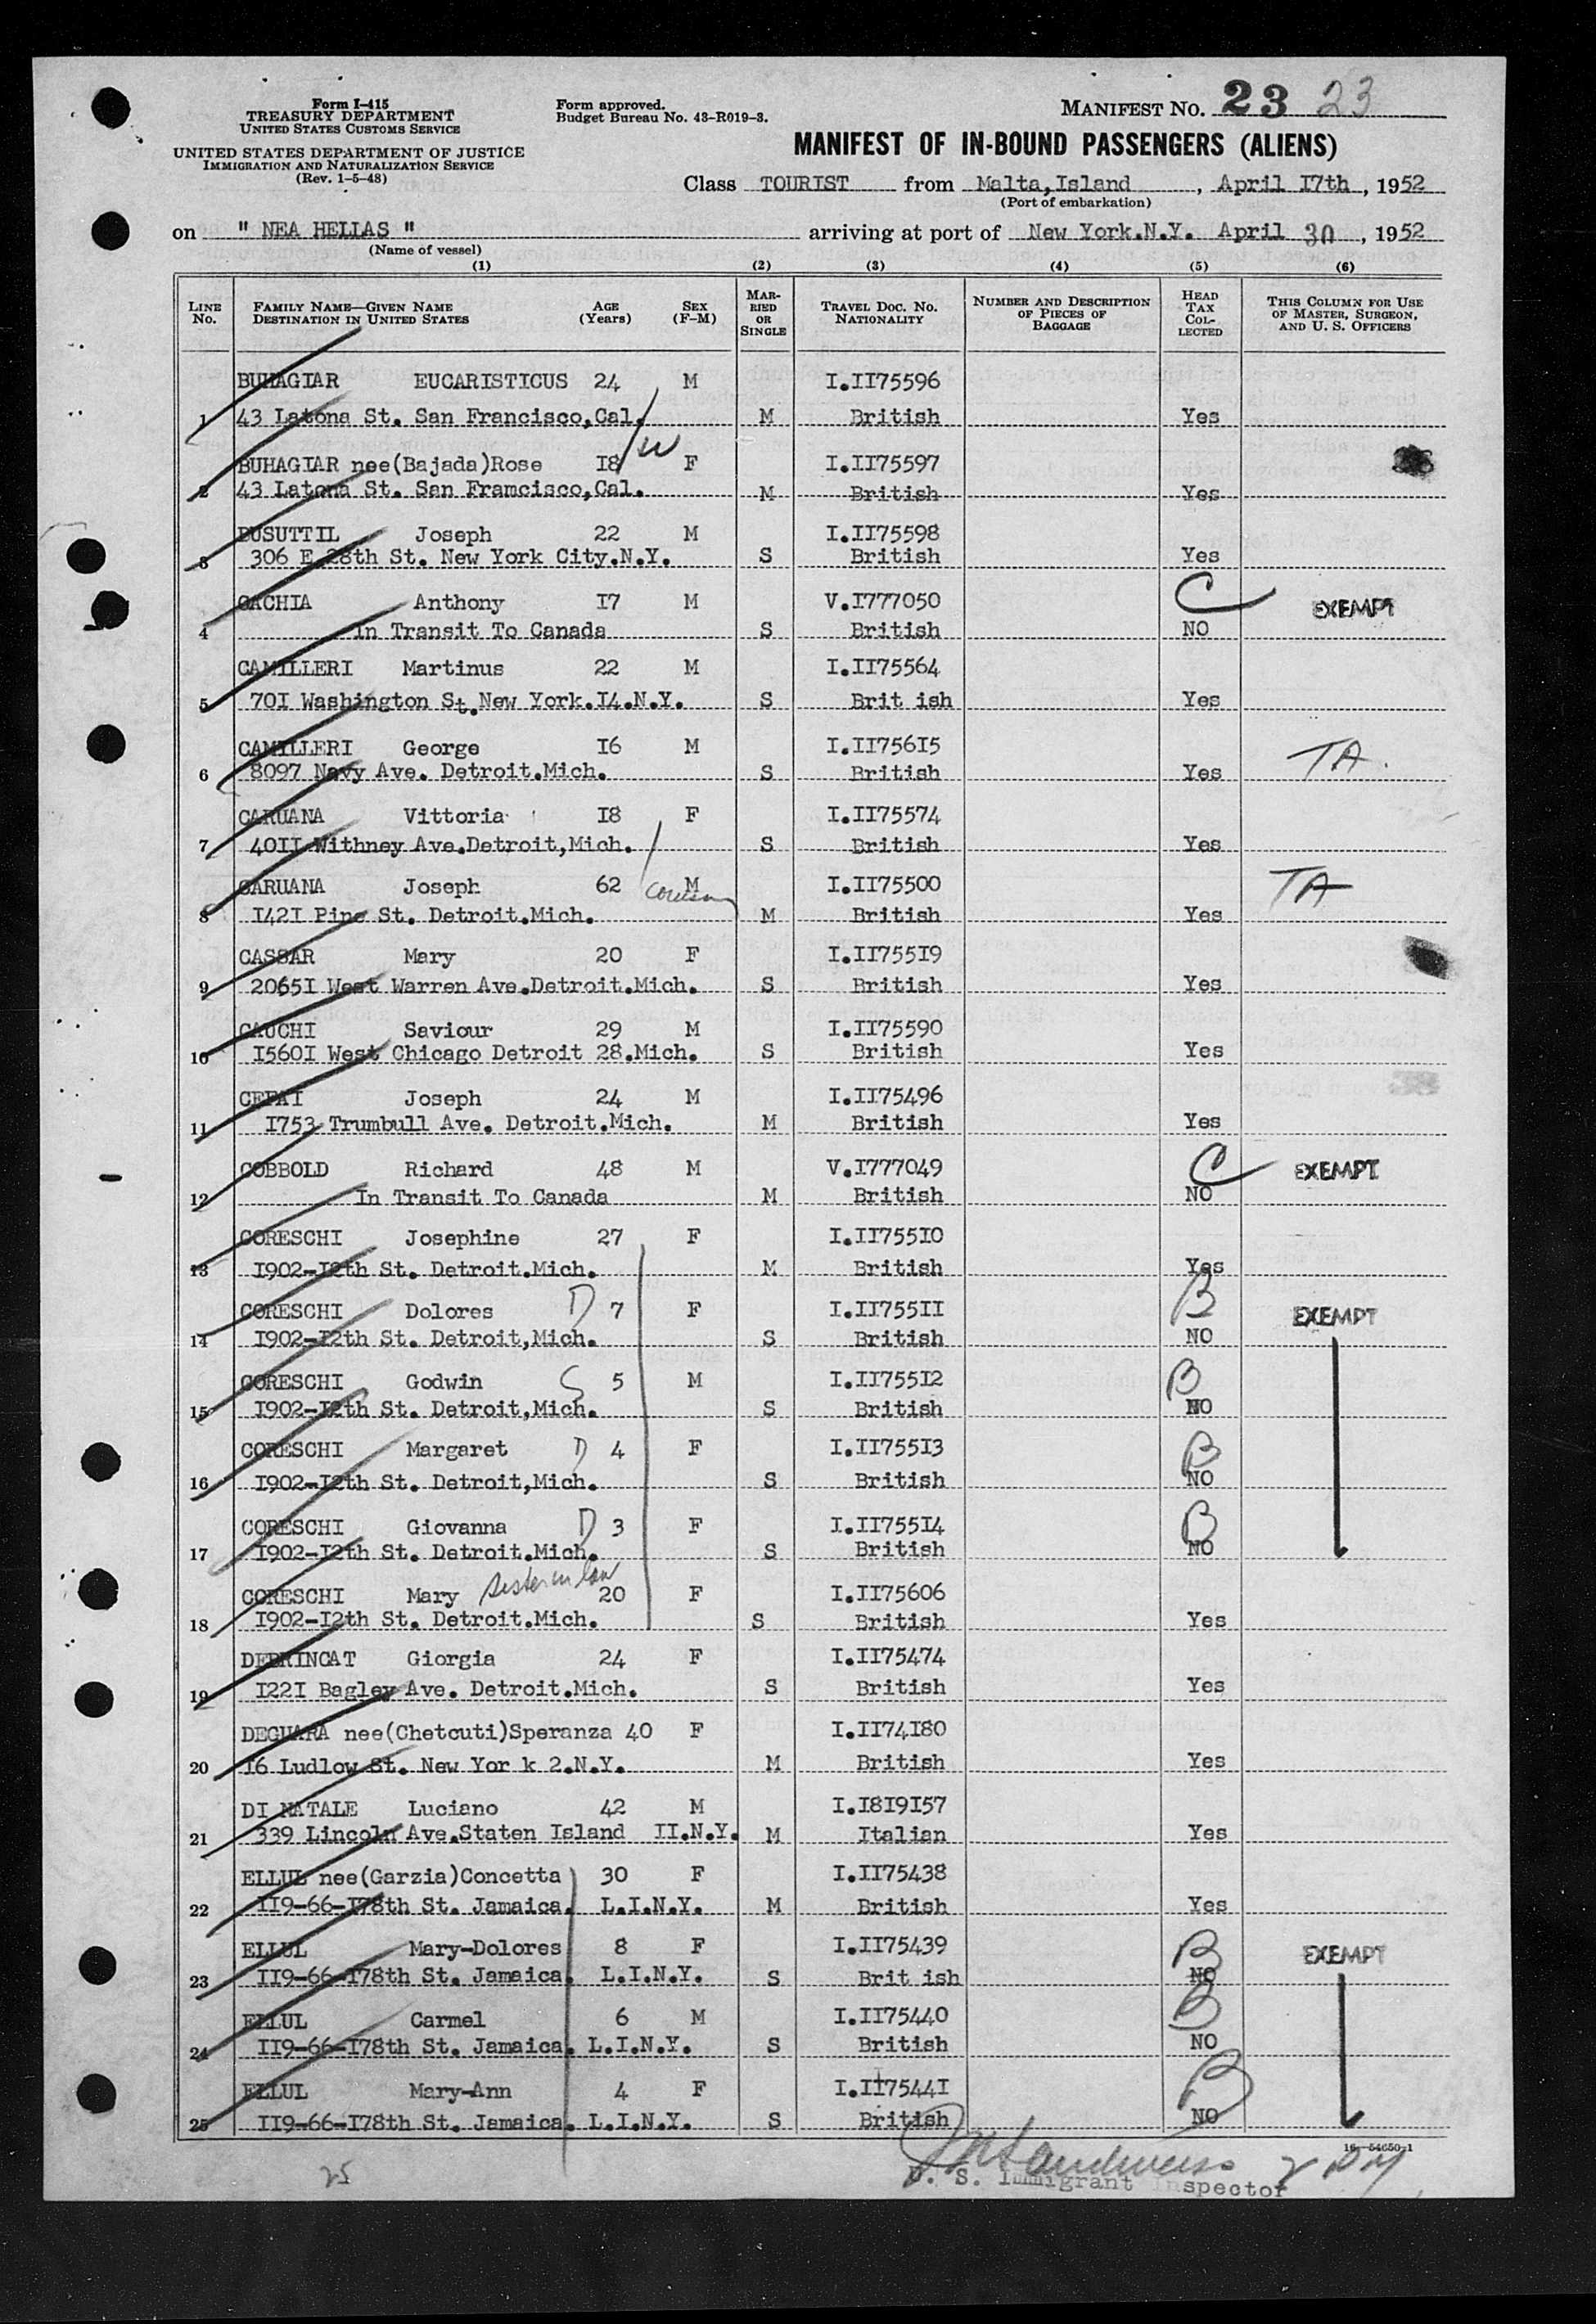 Form I-415
TREASURY DEPARTMENT
UNITED STATES CUSTOMS SERVICE
UNITED STATES DEPARTMENT OF JUSTICE
IMMIGRATION AND NATURALIZATION SERVICE
(Rev. 1-5-48)
Form approved.
Budget Bureau No. 43-R019-3.
MANIFEST NO. 23 23
MANIFEST OF IN-BOUND PASSENGERS (ALIENS)
Class TOURIST from Malta,Island, April I7th, 1952
(Port of embarkation)
on " NEA HELLAS " arriving at port of New York.N.Y. April 30, 1952
(Name of vessel)
(1) (2) (3) (4) (5) (6)
LINE No. FAMILY NAME—GIVEN NAME DESTINATION IN UNITED STATES AGE (Years) SEX (F-M) MARRIED OR SINGLE TRAVEL DOC. NO. NATIONALITY NUMBER AND DESCRIPTION OF PIECES OF BAGGAGE HEAD TAX COLLECTED THIS COLUMN FOR USE OF MASTER, SURGEON, AND U. S. OFFICERS
BUHAGIAR EUCARISTICUS 24 M I.II75596
1 43 Latona St. San Francisco,Cal. M British Yes
W
BUHAGIAR nee(Bajada)Rose I8 F I.II75597
2 43 Latona St. San Framcisco,Cal. M British Yes
BUSUTTIL Joseph 22 M I.II75598
3 306 E.28th St. New York City.N.Y. S British Yes
CACHIA Anthony I7 M V.I777050 C EXEMPT
4 In Transit To Canada S British NO
CAMILLERI Martinus 22 M I.II75564
5 70I Washington St.New York.I4.N.Y. S Brit ish Yes
CAMILLERI George I6 M I.II756I5 TA.
6 8097 Navy Ave. Detroit.Mich. S British Yes
CARUANA Vittoria I8 F I.II75574
7 40II Withney Ave.Detroit,Mich. S British Yes
CARUANA Joseph 62 M I.II75500 TA
8 I42I Pine St. Detroit.Mich. M British Yes
CASSAR Mary 20 F I.II755I9
9 2065I West Warren Ave.Detroit.Mich. S British Yes
CAUCHI Saviour 29 M I.II75590
10 I560I West Chicago Detroit 28.Mich. S British Yes
CEFAI Joseph 24 M I.II75496
11 I753 Trumbull Ave. Detroit.Mich. M British Yes
COBBOLD Richard 48 M V.I777049 C EXEMPT
12 In Transit To Canada M British NO
CORESCHI Josephine 27 F I.II755I0
13 I902-I2th St. Detroit.Mich. M British Yes
CORESCHI Dolores D 7 F I.II755II B EXEMPT
14 I902-I2th St. Detroit,Mich. S British NO
CORESCHI Godwin S 5 M I.II755I2 B
15 I902-I2th St. Detroit,Mich. S British NO
CORESCHI Margaret D 4 F I.II755I3 B
16 I902-I2th St. Detroit,Mich. S British NO
CORESCHI Giovanna D 3 F I.II755I4 B
17 I902-I2th St. Detroit.Mich. S British NO
CORESCHI Mary sister in law 20 F I.II75606
18 I902-I2th St. Detroit.Mich. S British Yes
DEBRINCAT Giorgia 24 F I.II75474
19 I22I Bagley Ave. Detroit.Mich. S British Yes
DEGUARA nee(Chetcuti)Speranza 40 F I.II74I80
20 I6 Ludlow St. New Yor k 2.N.Y. M British Yes
DI NATALE Luciano 42 M I.I8I9I57
21 339 Lincoln Ave.Staten Island II.N.Y. M Italian Yes
ELLUL nee(Garzia)Concetta 30 F I.II75438
22 II9-66-I78th St. Jamaica. L.I.N.Y. M British Yes
ELLUL Mary-Dolores 8 F I.II75439 B EXEMPT
23 II9-66-I78th St. Jamaica. L.I.N.Y. S Brit ish NO
ELLUL Carmel 6 M I.II75440 B
24 II9-66-I78th St. Jamaica. L.I.N.Y. S British NO
ELLUL Mary-Ann 4 F I.II7544I B
25 II9-66-I78th St. Jamaica. L.I.N.Y. S British NO
16—54650-1
25
U. S. Immigrant Inspector